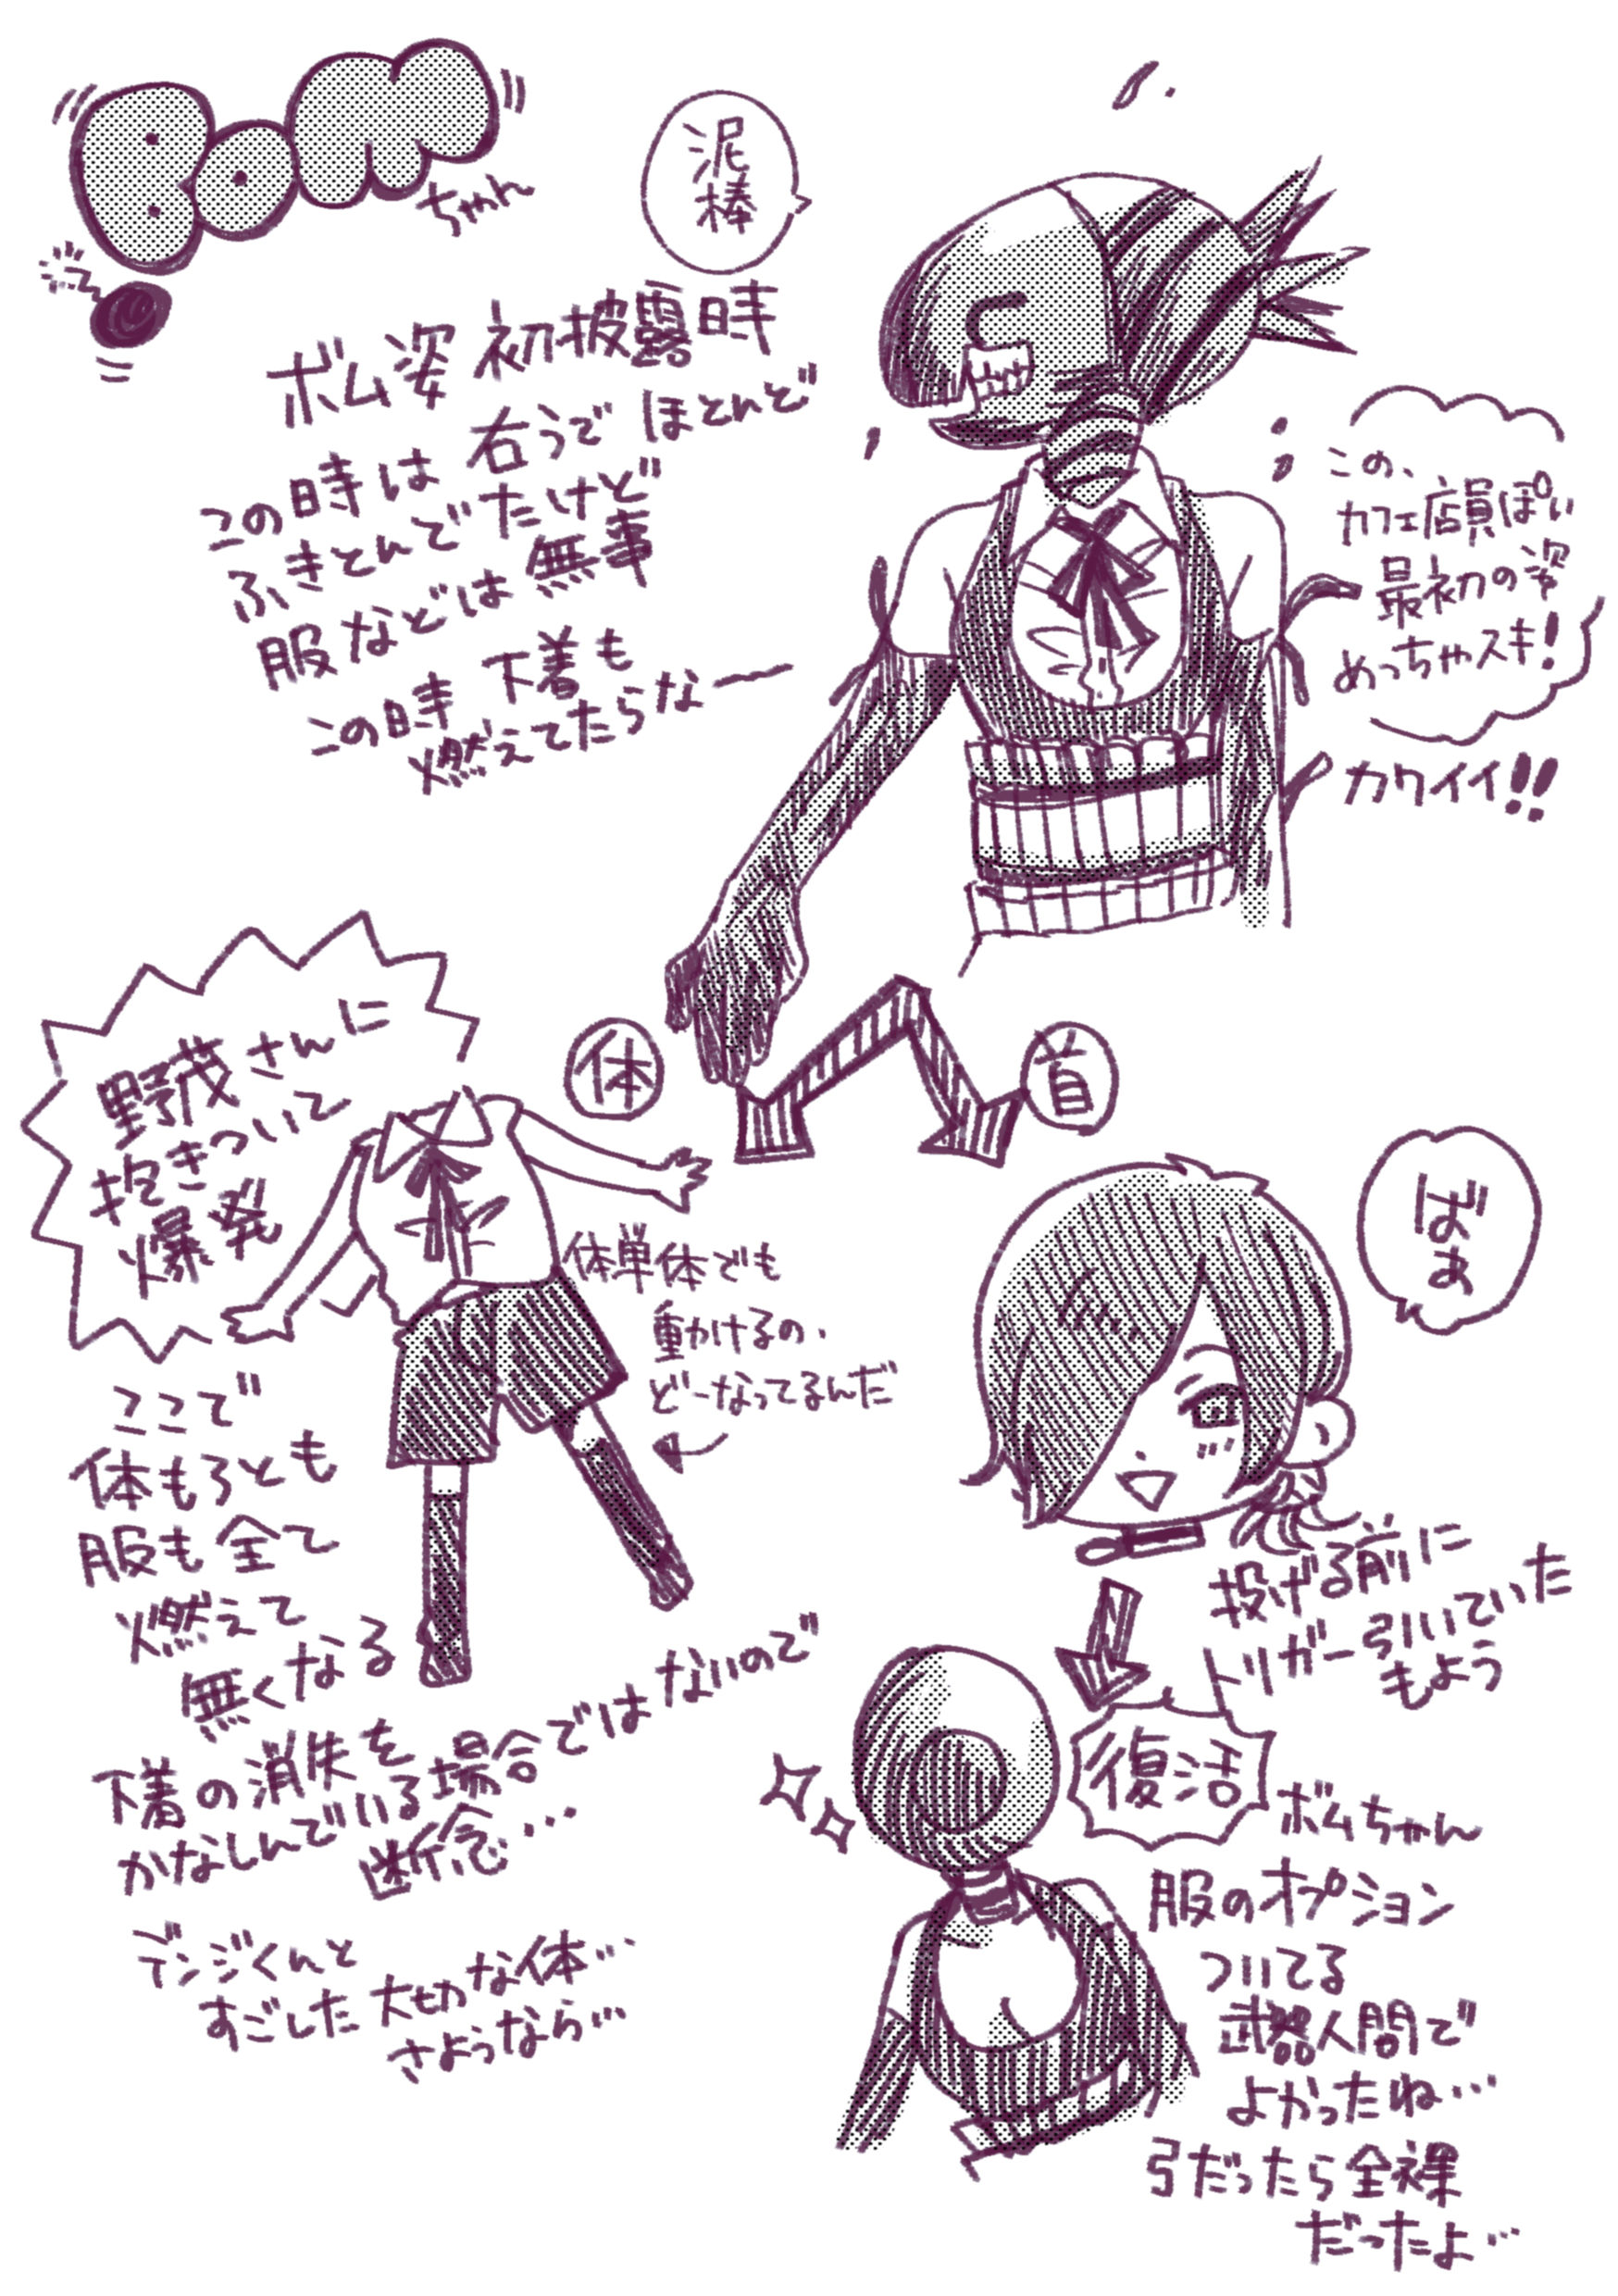 BOM
ちゃん
泥
棒
ボム姿 初披露時
この時は 右うで ほとんど
ふきとんでたけど
服などは無事
この時 下着も
燃えてたらなー
この、
カフェ店員ぽい
最初の姿
めっちゃスキ!
カワイイ!!
野茂さんに
抱きついて
爆発
体
首
体単体でも
動けるの、
どーなってるんだ
ばぁ
ここで
体もろとも
服も全て
燃えて
無くなる
下着の消失を
かなしんでいる場合ではないので
断念…
デンジくんと
すごした大切な体…
さようなら…
投げる前に
トリガー引いていた
もよう
復活
ボムちゃん
服のオプション
ついてる
武器人間で
よかったね…
弓だったら全裸
だったよ…